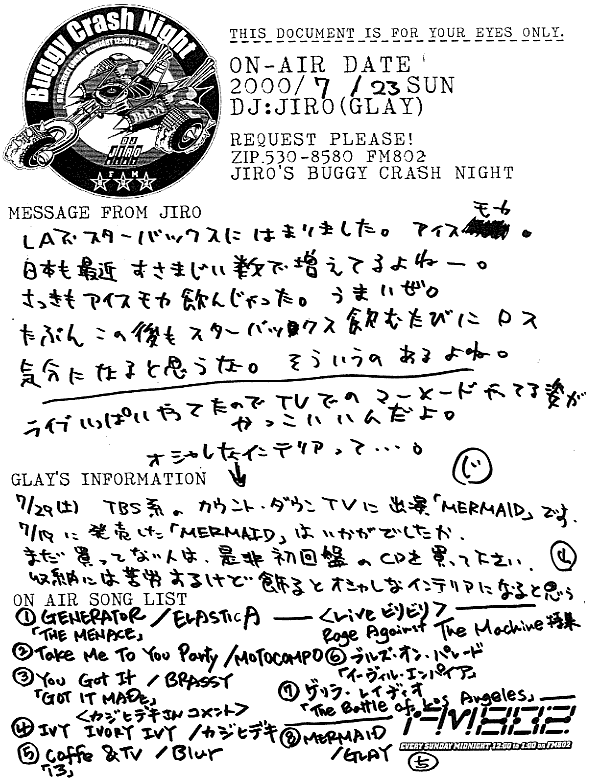 Buggy Crash Night
EVERY SUNDAY MIDNIGHT 12:00 to 1:00
BCN
DJ
JIRO
FM
802
THIS DOCUMENT IS FOR YOUR EYES ONLY.
ON-AIR DATE
2000/7/23 SUN
DJ:JIRO(GLAY)
REQUEST PLEASE!
ZIP.530-8580 FM802
JIRO'S BUGGY CRASH NIGHT
MESSAGE FROM JIRO
LAでスターバックスにはまりました。アイスモカ。
日本も最近すさまじい数で増えてるよねー。
さっきもアイスモカ飲んじゃった。うまいぜ。
たぶんこの後もスターバックス飲むたびにロス
気分になると思うな。そういうのあるよね。
ライブいっぱいやってたのでTVでのマーメードやってる姿が
かっこいいんだよ。
オシャレなインテリアって…。
じ
GLAY'S INFORMATION
7/29(土) TBS系のカウント・ダウンTVに出演「MERMAID」です.
7/19に発売した「MERMAID」はいかがでしたか.
まだ買ってない人は、是非初回盤のCDを買って下さい.
収納には苦労するけど飾るとオシャレなインテリアになると思う
ON AIR SONG LIST
① GENERATOR / ELASTICA
「THE MENACE」
② Take Me To You Party / MOTOCOMPO
③ You Got It / BRASSY
「GOT IT MADE」
<カジヒデキINコメント>
④ IVY IVORY IVY / カジヒデキ
⑤ Coffe & TV / Blur
「13」
<Live ビリビリ>
Rage Against The Machine 特集
⑥ ブルズ・オン・パレード
「イーヴィル・エンパイア」
⑦ ゲリラ・レイディオ
「The Battle of Los Angeles」
⑧ MERMAID
/ GLAY
FM802
EVERY SUNDAY MIDNIGHT 12:00 to 1:00 on FM802